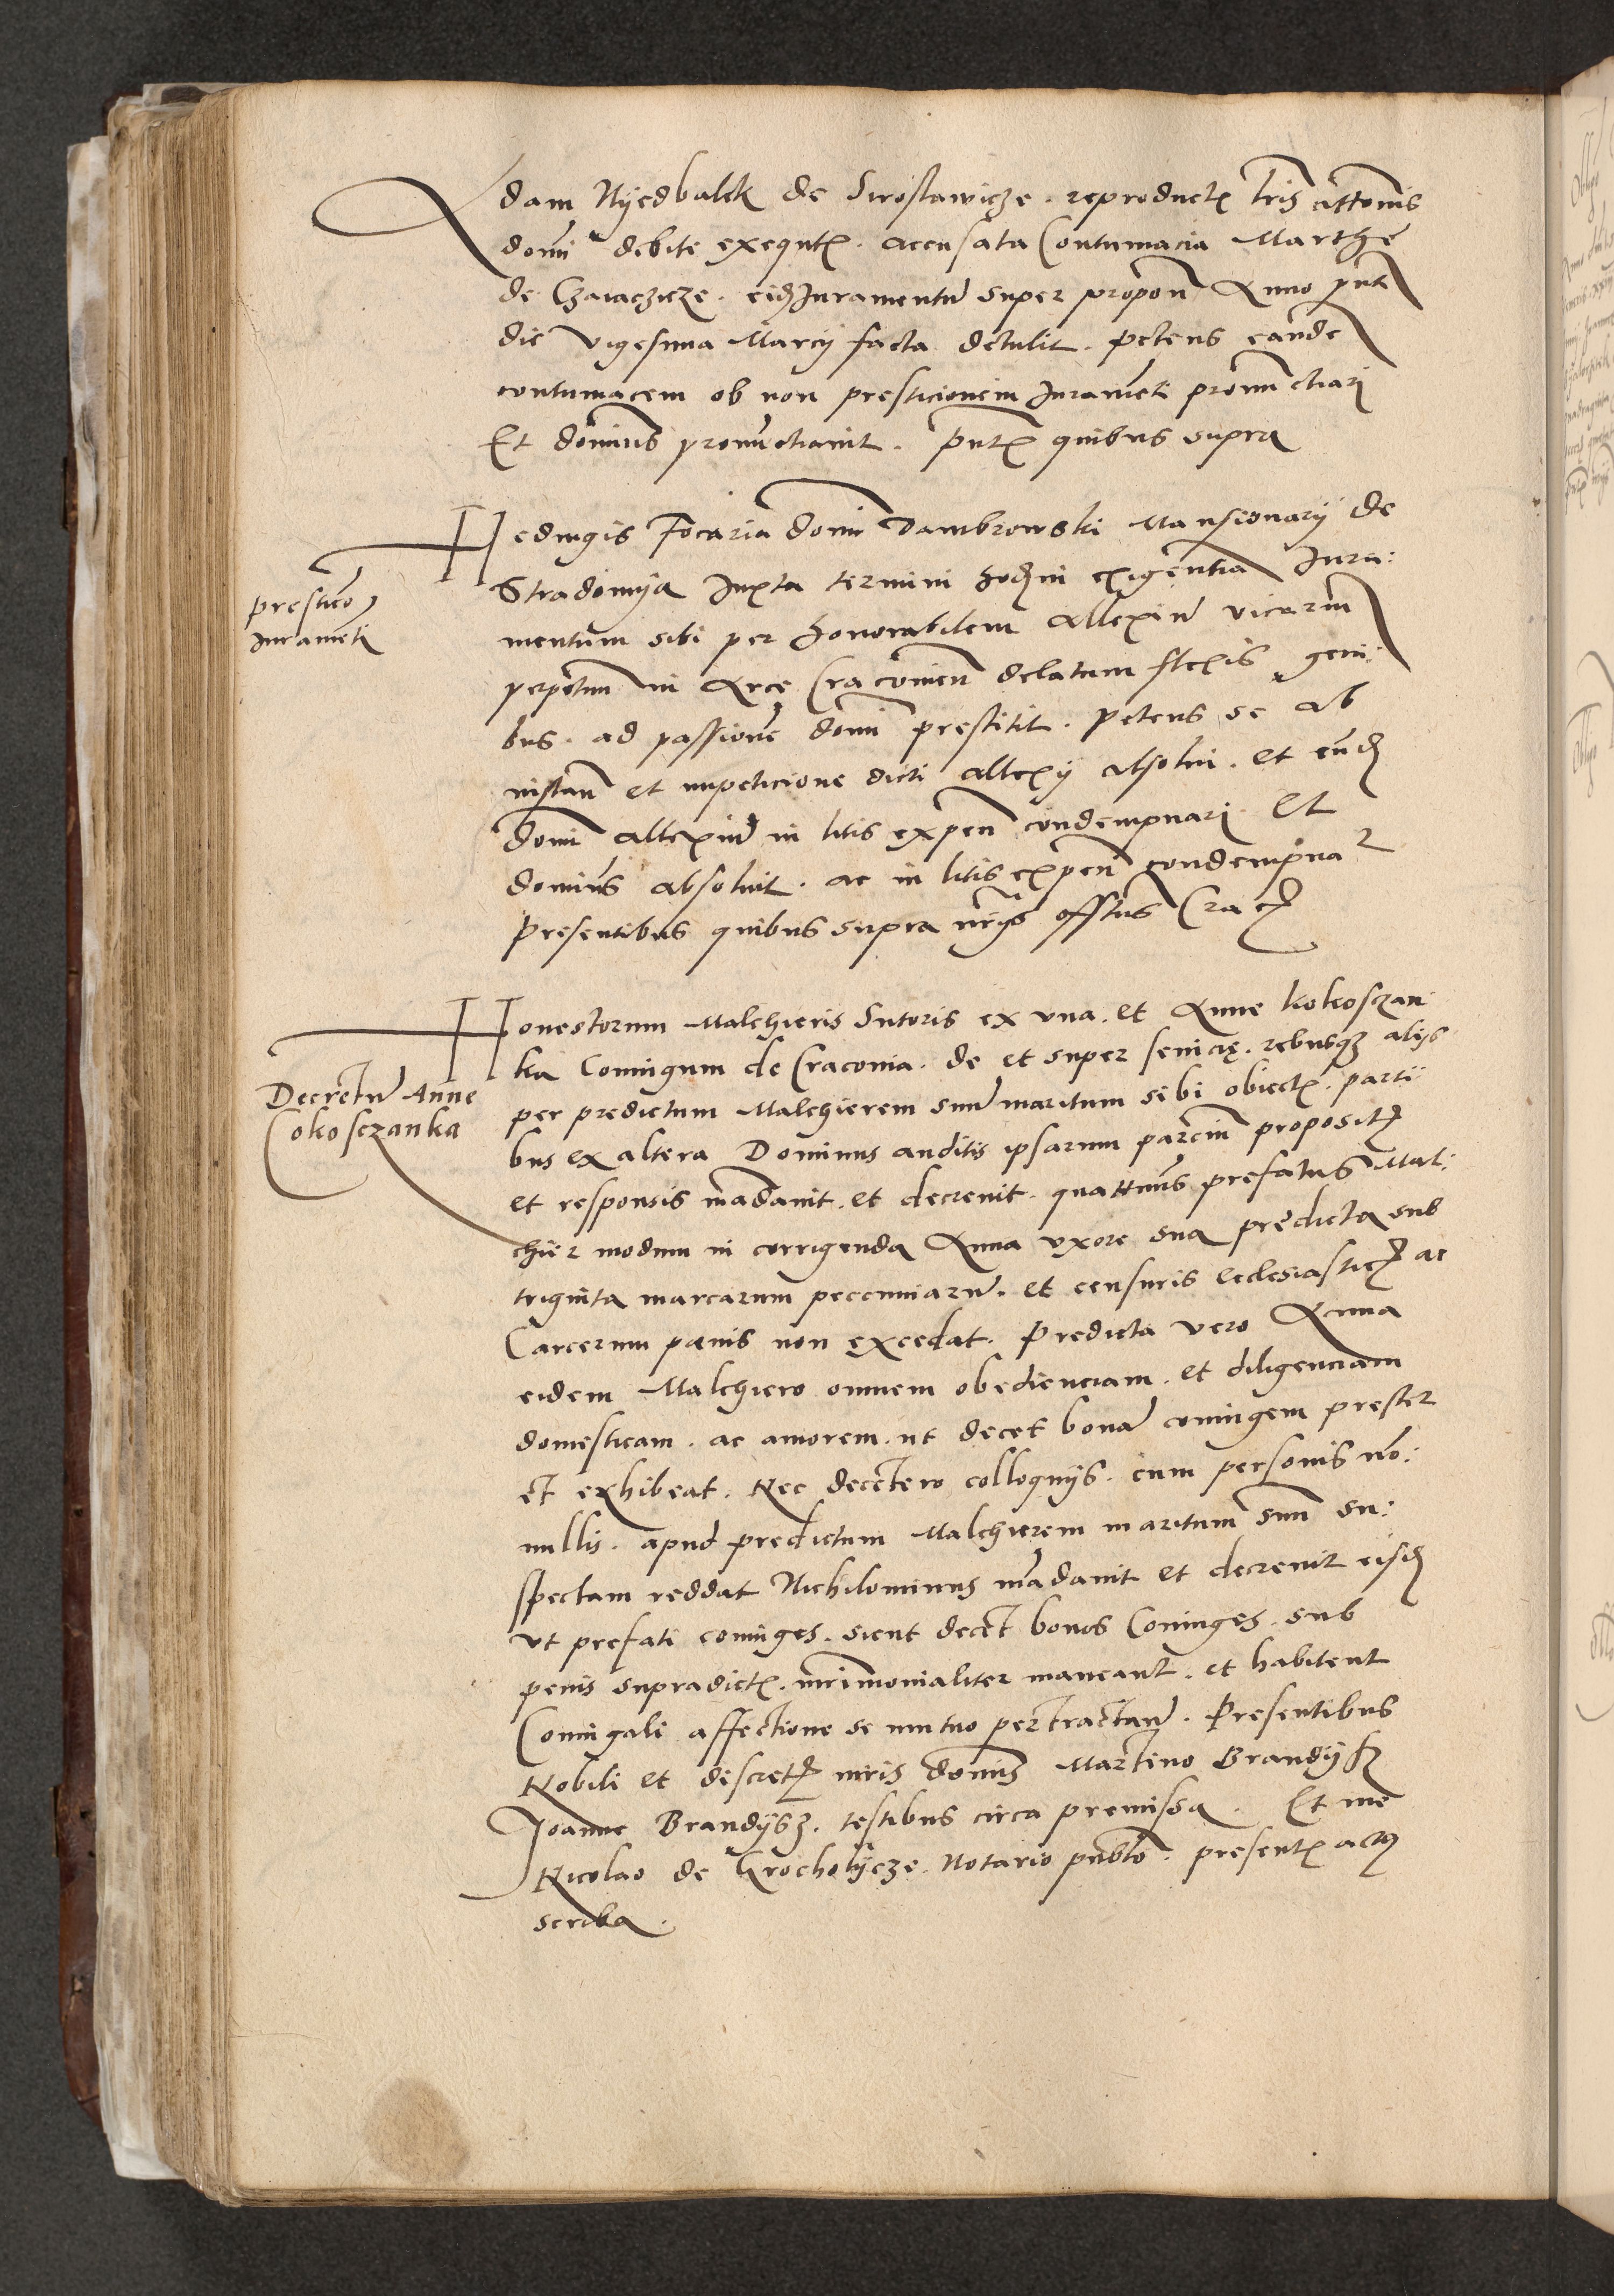 Adam Nyedbalek de Siroslawicze . reproductis lris cittonis
domi debite exequtis . accusata Contumacia Marthe
de Czaiaczicze . eidem Juramentum super propon Anno pnti
die Vigesima Marcij facta detulit . petens eandem
contumacem ob non presticionem Jurameti pronunctiari
Et dominus pronunctiauit . pntibus quibus supra
Heduigis Focaria domi Dambrowski Mansionarij de
Stradomya Juxta termini hodierni exigentiam Jura:
presticio
Jurameti
mentum sibi per honorabilem Allexium vicarium
perpetuum in Arce Cracouien delatum flexis geni:
bus . ad passionem domi prestitit . petens se ab
instan et impeticione dicti Allexij absolui . et eundem
domi Allexium in litis expen condempnari Et
dominus absoluit . ac in litis expen condempnat
presentibus quibus supra officius Crac
Honestorum Malchieris Sutoris ex vna . et Anne Kokosczan
ka Coniugum de Cracouia . de et super seuicię . rebusque alijs
Decretum Anne
Cokosczanka
per predictum Malchierem suum maritum sibi obiectis . parti
bus ex altera Dominus auditis ipsarum parcium propositis
et responsis madauit . et decreuit . quattenus prefatus Mal:
chier modum in corrigenda Anna vxore sua predicta sub
triginta marcarum peccuniarum . et censuris ecclesiasticis ac
Carcerum pœnis non excedat . Predicta vero Anna
eidem Malchiero omnem obedienciam . et diligenciam
domesticam . ac amorem . ut decet bonam coniugem prestet
et exhibeat . Nec decetero colloquijs . cum personis no:
nullis . apud predictum Malchierem maritum suum su:
spectam reddat Nichilominus madauit et decreuit eisdem
vt prefati coniuges . sicut decet bonos Coniuges . sub
penis supradictis . mrimonialiter maneant . et habitent
Coniugali affectione se mutuo pertractan . Presentibus
Nobili et discretis viris dominis Martino Brandysz
Joanne Brandysz . testibus circa premissa . Et me
Nicolao de Grocholycze . Notario publico . presentis actus
scriba .